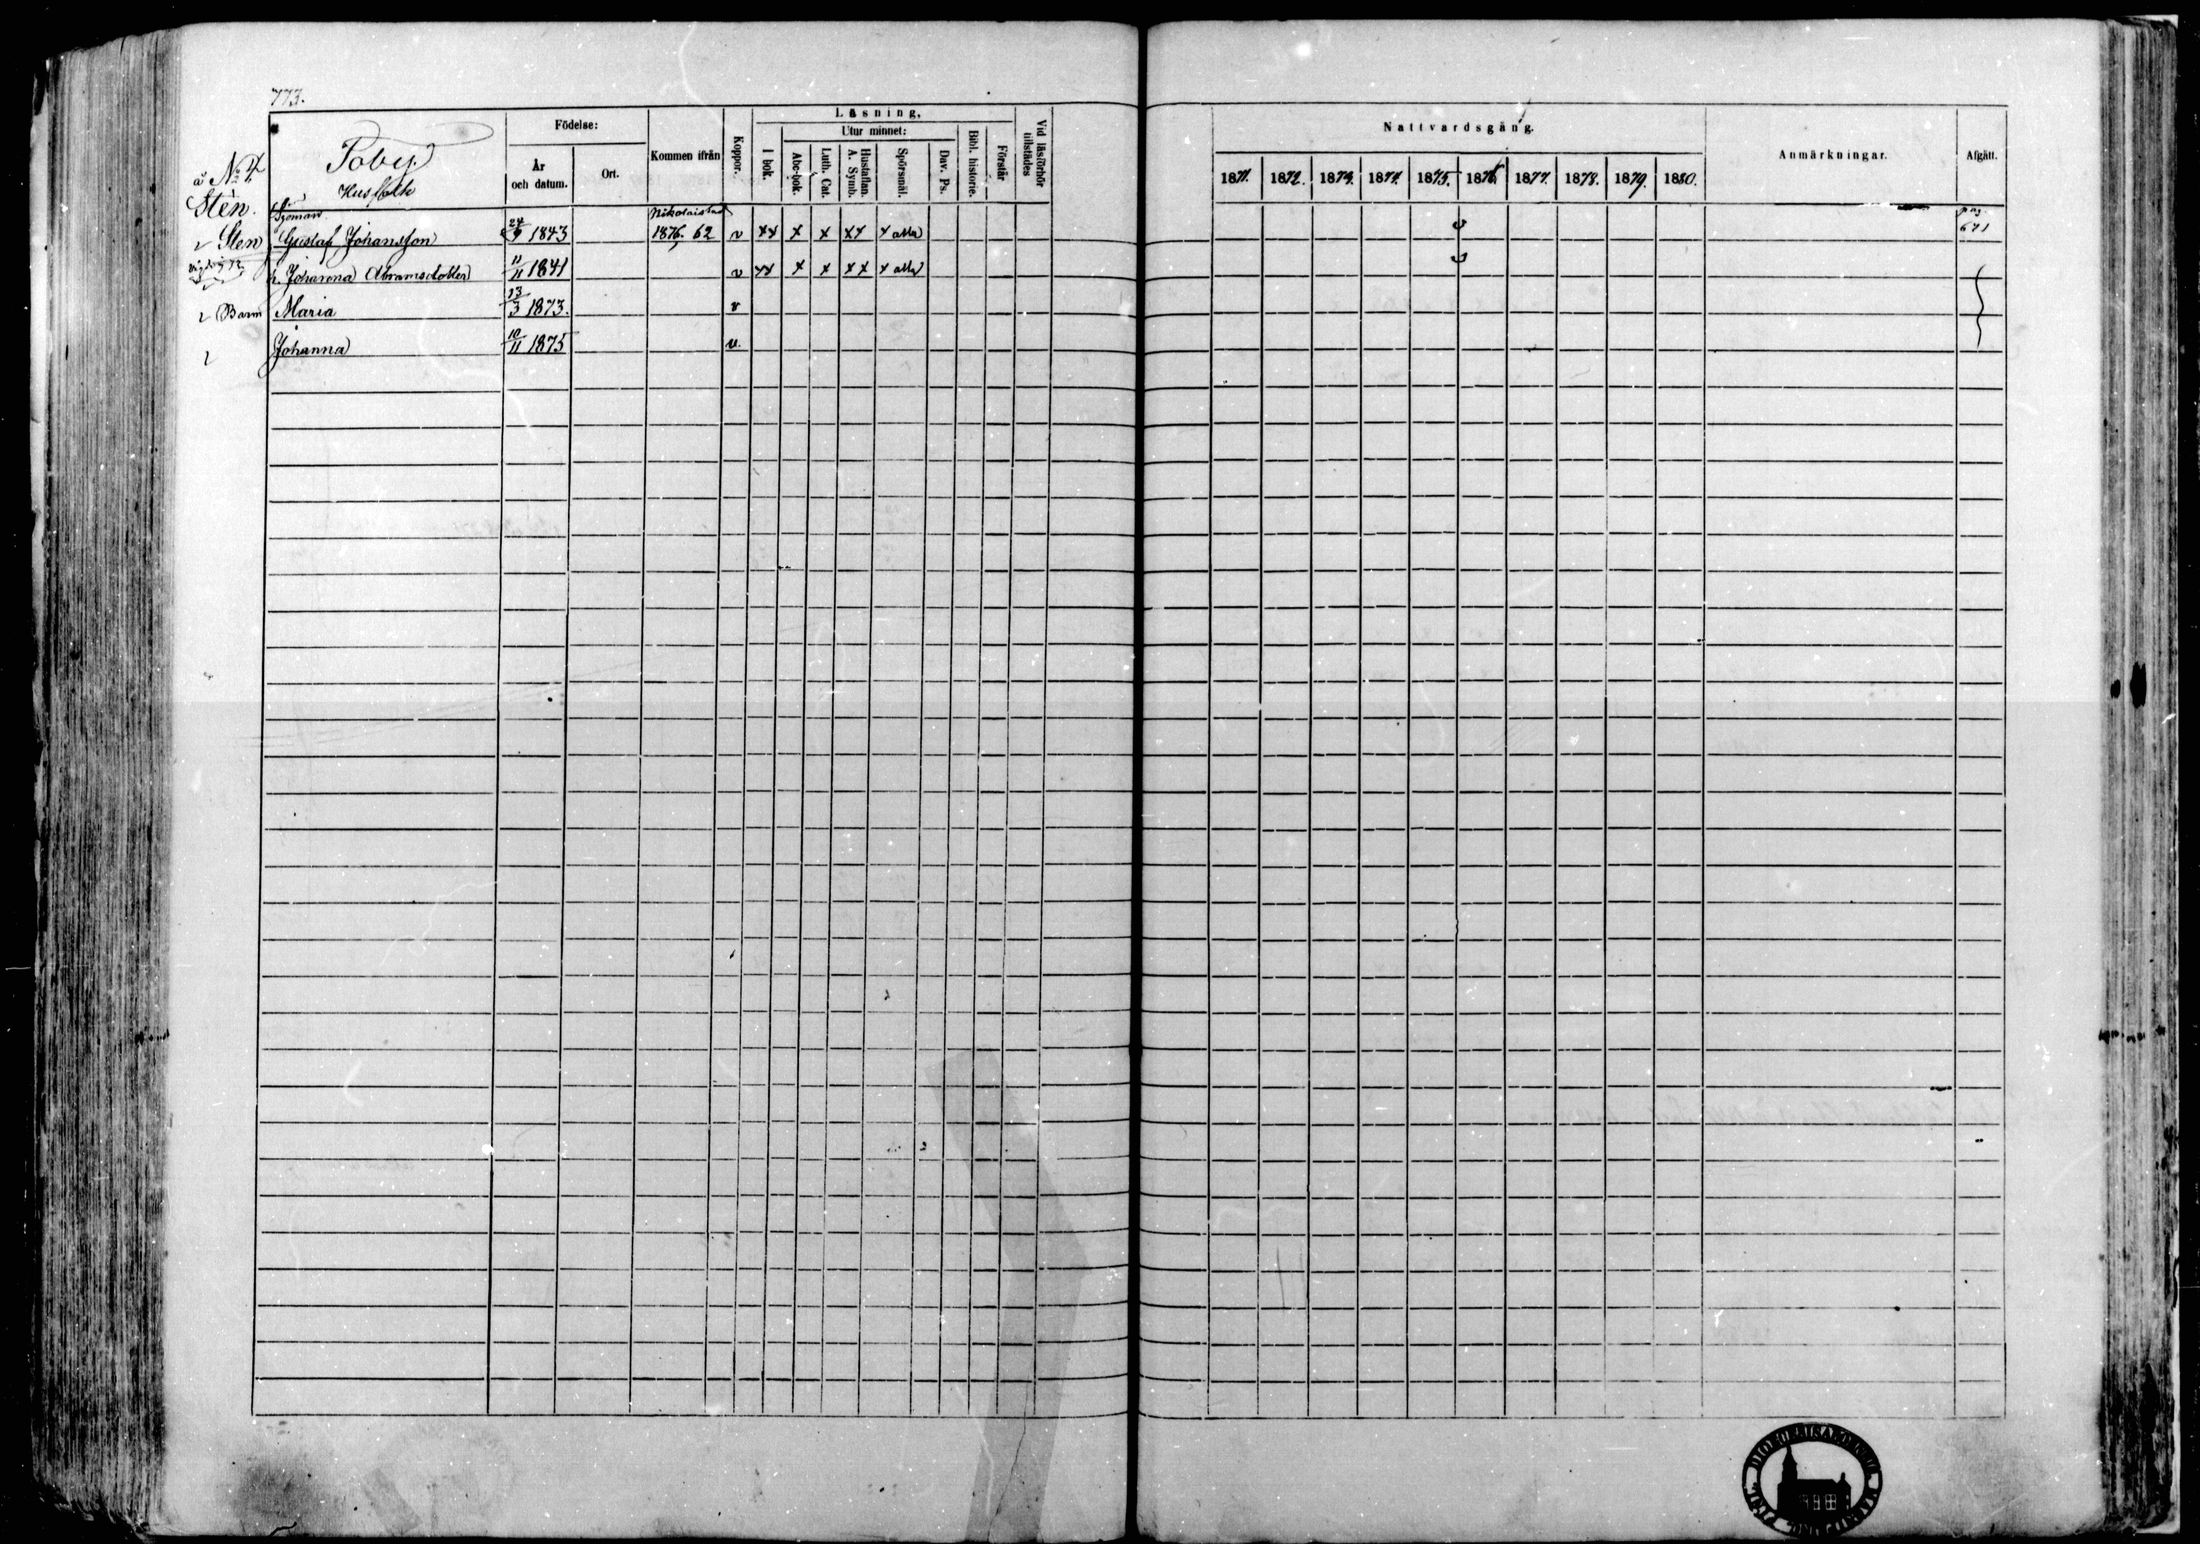 773.
Födelse: Kommen ifrån Koppor. Läsning, Vid läsförhör tillstädes
År och datum. Ort. I bok. Utur minnet: Abc-bok. Luth. Cat. Hustaflan. A. Symb. Spörsmål. Dav. Ps. Bibl. historie. Förstår
Nattvardsgång. Anmärkningar. Afgått.
1871. 1872. 1873. 1874. 1875. 1876. 1877. 1878. 1879. 1880.
Toby
Husfolk
å No 4
Sten.
Sjöman Nikolaistad pag.
Sten Gustaf Johansson 24/9 1843 1876. 62 v xx x x xx x alla 671
h. Johanna Abramsdotter 11/11 1841 v xx x x xx x alla
Barn Maria 13/3 1873. v
Johanna 10/11 1875 v.